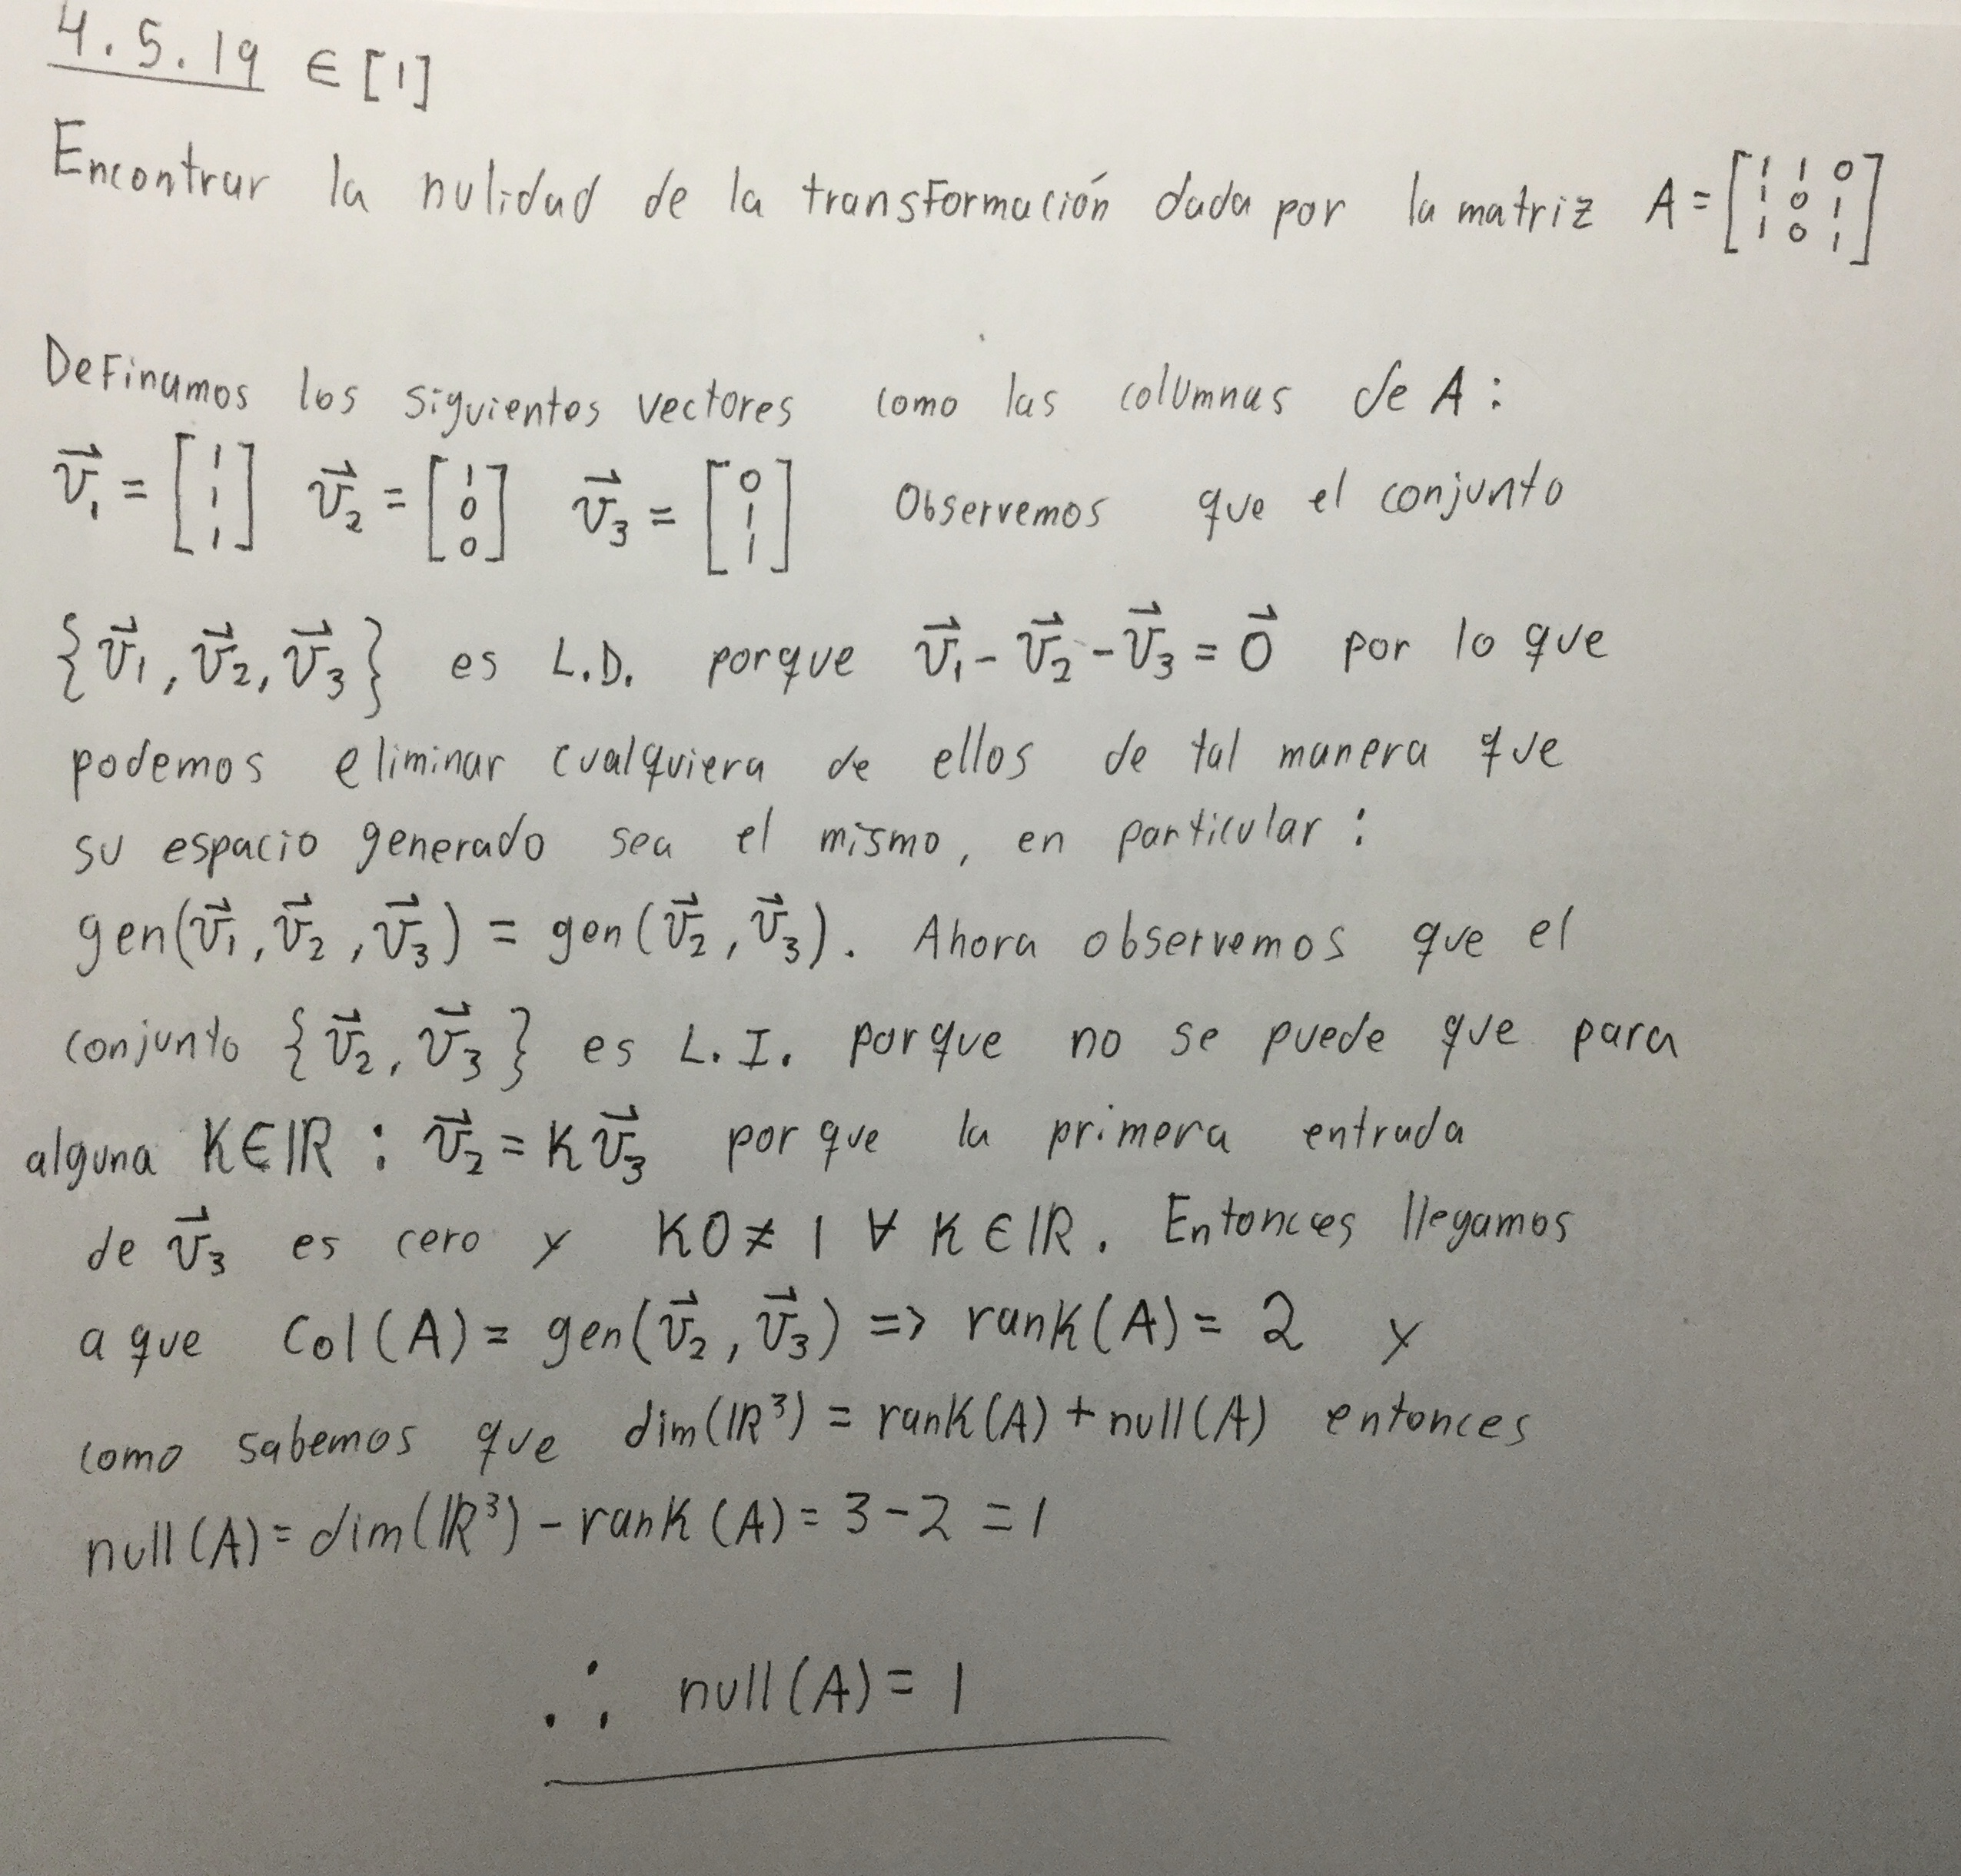 4.5.19 ∈ [1]
Encontrar la nulidad de la transformación dada por la matriz A = [1 1 0; 1 0 1; 1 0 1]
Definamos los siguientes vectores como las columnas de A:
v⃗₁ = [1; 1; 1] v⃗₂ = [1; 0; 0] v⃗₃ = [0; 1; 1] Observemos que el conjunto
{v⃗₁, v⃗₂, v⃗₃} es L.D. porque v⃗₁ - v⃗₂ - v⃗₃ = 0⃗ por lo que
podemos eliminar cualquiera de ellos de tal manera que
su espacio generado sea el mismo, en particular:
gen(v⃗₁, v⃗₂, v⃗₃) = gen(v⃗₂, v⃗₃). Ahora observemos que el
conjunto {v⃗₂, v⃗₃} es L.I. porque no se puede que para
alguna K∈ℝ : v⃗₂ = K v⃗₃ porque la primera entrada
de v⃗₃ es cero y K0 ≠ 1 ∀ K ∈ ℝ. Entonces llegamos
a que Col(A) = gen(v⃗₂, v⃗₃) => rank(A) = 2 y
como sabemos que dim(ℝ³) = rank(A) + null(A) entonces
null(A) = dim(ℝ³) - rank(A) = 3 - 2 = 1
∴ null(A) = 1